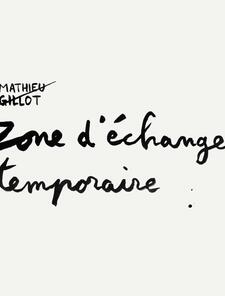 MATHIEU
GILLOT
Zone d'échange
temporaire